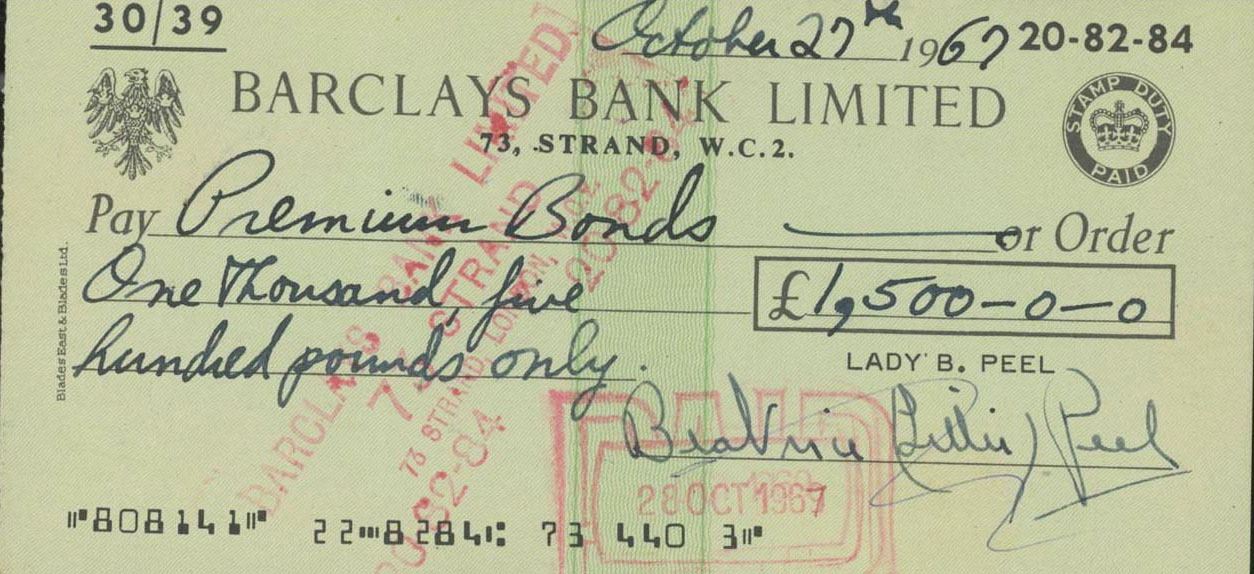 30/39
October 27th 1967 20-82-84
BARCLAYS BANK LIMITED
73, STRAND, W.C.2.
STAMP DUTY PAID
Pay Premium Bonds or Order
One Thousand, five
£1,500-0-0
hundred pounds only.
LADY B. PEEL
Beatrice (Lillie) Peel
Blades East & Blades Ltd.
BARCLAYS BANK LIMITED
73 STRAND
73 STRAND, LONDON, W.C.2.
20-82-84
20-82-84
PAID
28 OCT 1967
808141 22 8284 73 440 3